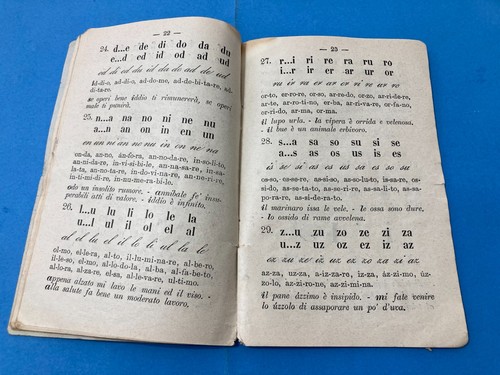 — 22 —
24. d...e de di do da du
e...d ed id od ad ud
od di od da id da do ad de ud
Id-di-o, ad-di-o, ad-do-me, ad-de-bi-ta-re, ad-
di-ta-re.
se operi bene Iddio ti rimunererà, se operi
male ti punirà.
25. n...a na no ni ne nu
a...n an on in en un
on-da, an-no, án-fo-ra, an-no-da-re, in-so-li-to,
an-ni-da-re, in-vi-si-bi-le, an-na-sa-re, in-na-
la-ta, an-no-ta-re, in-vi-ta-re, in-no-va-re,
in-ti-mi-di-re, in-nu-me-ra-bi-le.
odo un insolito rumore. - annibale fe' inso-
perabili atti di valore. - Iddio è infinito.
26. l...u lu li lo le la
u...l ul il ol el al
al el lu el il lo le ul la lo
el-mo, el-le-ra, al-to, il-lu-mi-na-re, al-be-ro,
il-me-no, al-lo-do-la, al-ba, al-fa-be-to,
al-lo-ra, al-za-re, el-sa, al-le-va-re, ul-ti-mo.
appena alzato mi lavo le mani ed il viso. -
alla salute fa bene un moderato lavoro.
— 23 —
27. r...i ri re ra ru ro
i...r ir er ar ur or
ra ir ra er ar or ri ro ur or
or-to, er-ro-re, or-so, ar-re-do, or-zo, ar-ri-de-re,
ar-te, ar-ro-ti-no, er-ba, ar-ri-va-re, or-fa-no,
or-ri-do, ar-ma, or-di-ne.
il lupo urla. - la vipera è orrida e velenosa.
- il bue è un animale erbivoro.
28. s...a sa so su si se
a...s as os us is es
is se si as es us so is os su
os-sa, es-se-re, as-si-o, as-so-lu-to, is-sa-re, os-
si-do, as-se-ta-to, as-so-ri-re, as-sa-li-to, as-sa-
po-ra-re, as-si-de-ra-to.
Il marinaro issa le vele. - le ossa sono dure.
- lo ossido di rame avvelena.
29. z...u zu zo ze zi za
u...z uz oz ez iz az
oz zu ze iz ez zo za zi az
az-za, uz-za, a-iz-za-re, iz-za, áz-zi-mo, úz-
zo-lo, az-zi-ro-ne, az-zi-mi-na.
Il pane ázzimo è insipido. - mi fate venire
lo úzzolo di assaporare un po' d'uva.